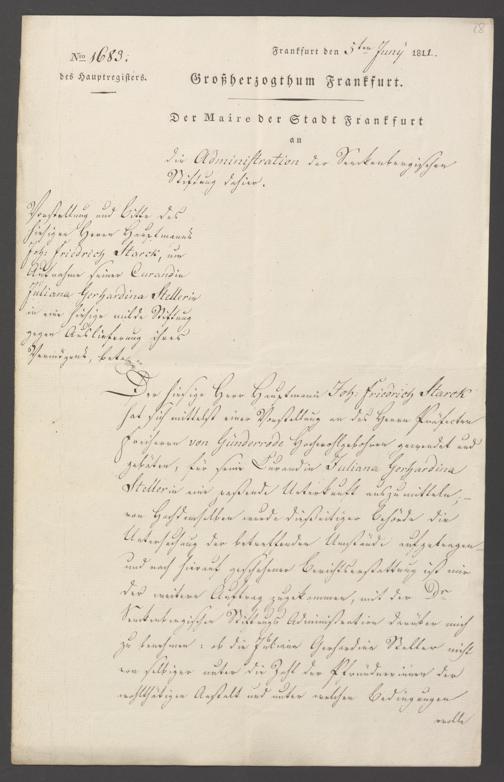 28
Nro 1683.
des Hauptregisters.
Frankfurt den 5ten Juny 1811.
Großherzogthum Frankfurt.
Der Maire der Stadt Frankfurt
an
die Administration der Senckenbergischen
Stiftung dahier.
Vorstellung und Bitte des
hiesigen Herrn Hauptmanns
Joh: Friedrich Starck, um
Aufnahme seiner Curandin
Juliana Gerhardina Stellerin
in eine hiesige milde Stiftung
gegen Auslieferung ihres
Vermögens, betr.
Der hiesige Herr Hauptmann Joh: Friedrich Starck
hat sich mittelst einer Vorstellung an des Herrn Präfecten
Freiherrn von Günderrode Hochwohlgebohren gewendet und
gebeten, für seine Curandin Juliana Gerhardina
Stellerin eine passende Unterkunft auszumitteln,
von Hochdemselben wurde diesseitiger Behörde die
Untersuchung der betreffenden Umstände aufgetragen
und nach hierauf geschehener Berichtserstattung ist mir
der weitere Auftrag zugekommen, mit der Dr
Senckenbergischen Stiftungs Administration darüber mich
zu benehmen: ob die Juliana Gerhardina Steller nicht
von selbiger unter die Zahl der Pfründnerinnen der
wohlthätigen Anstalt und unter welchen Bedingungen
wolle